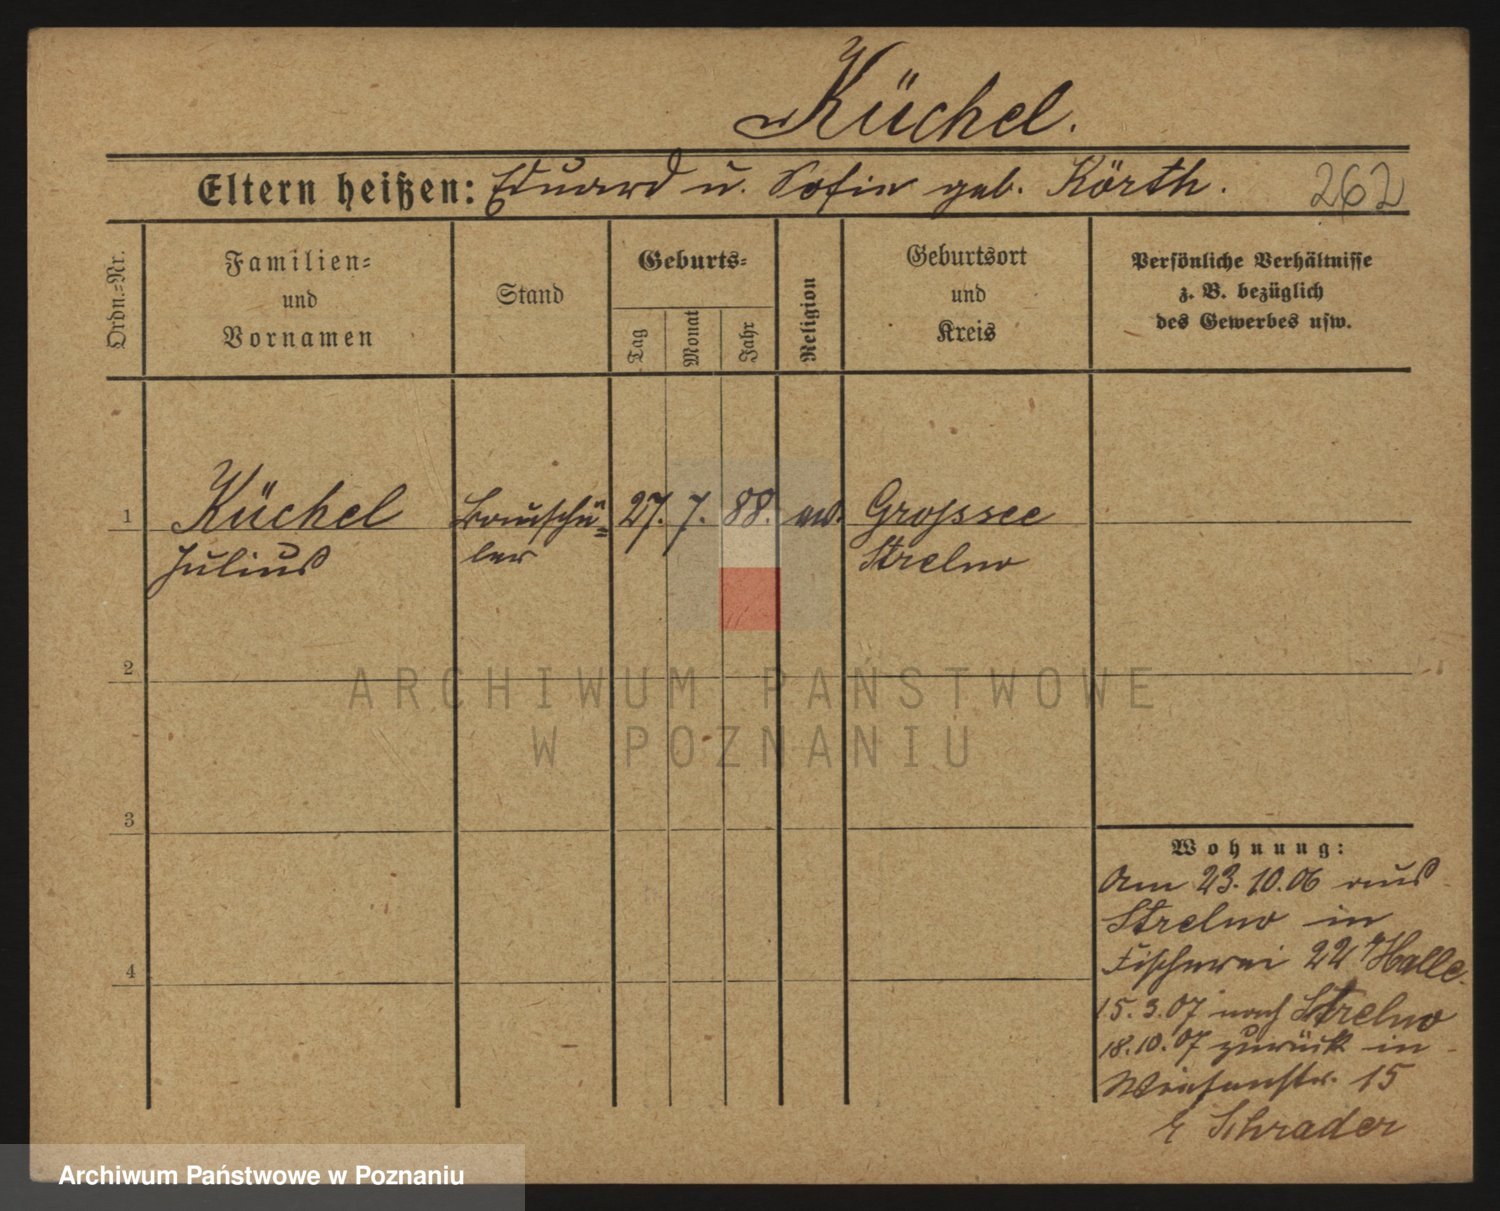 Küchel.
Eltern heißen: Eduard u. Sofie geb. Körth.
262
Ordn.=Nr.
Familien=
und
Vornamen
Stand
Geburts=
Tag
Monat
Jahr
Religion
Geburtsort
und
Kreis
Persönliche Verhältnisse
z. B. bezüglich
des Gewerbes usw.
1
Küchel
Julius
Bauschü=
ler
27. 7. 88. ev.
Grosssee
Strelno
2
3
4
ARCHIWUM PAŃSTWOWE
W POZNANIU
Wohnung:
Am 23.10.06 aus
Strelno in
Fischerei 22 Halle.
15.3.07 nach Strelno
18.10.07 zurück in
Wiesenstr. 15
Schrader
Archiwum Państwowe w Poznaniu